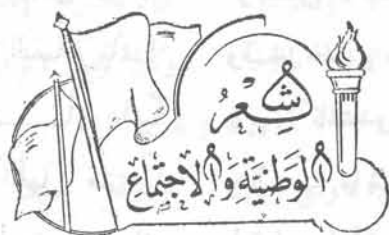 شِعْرُ
الوَطنيَّةِ وَالاجتمَاعِ